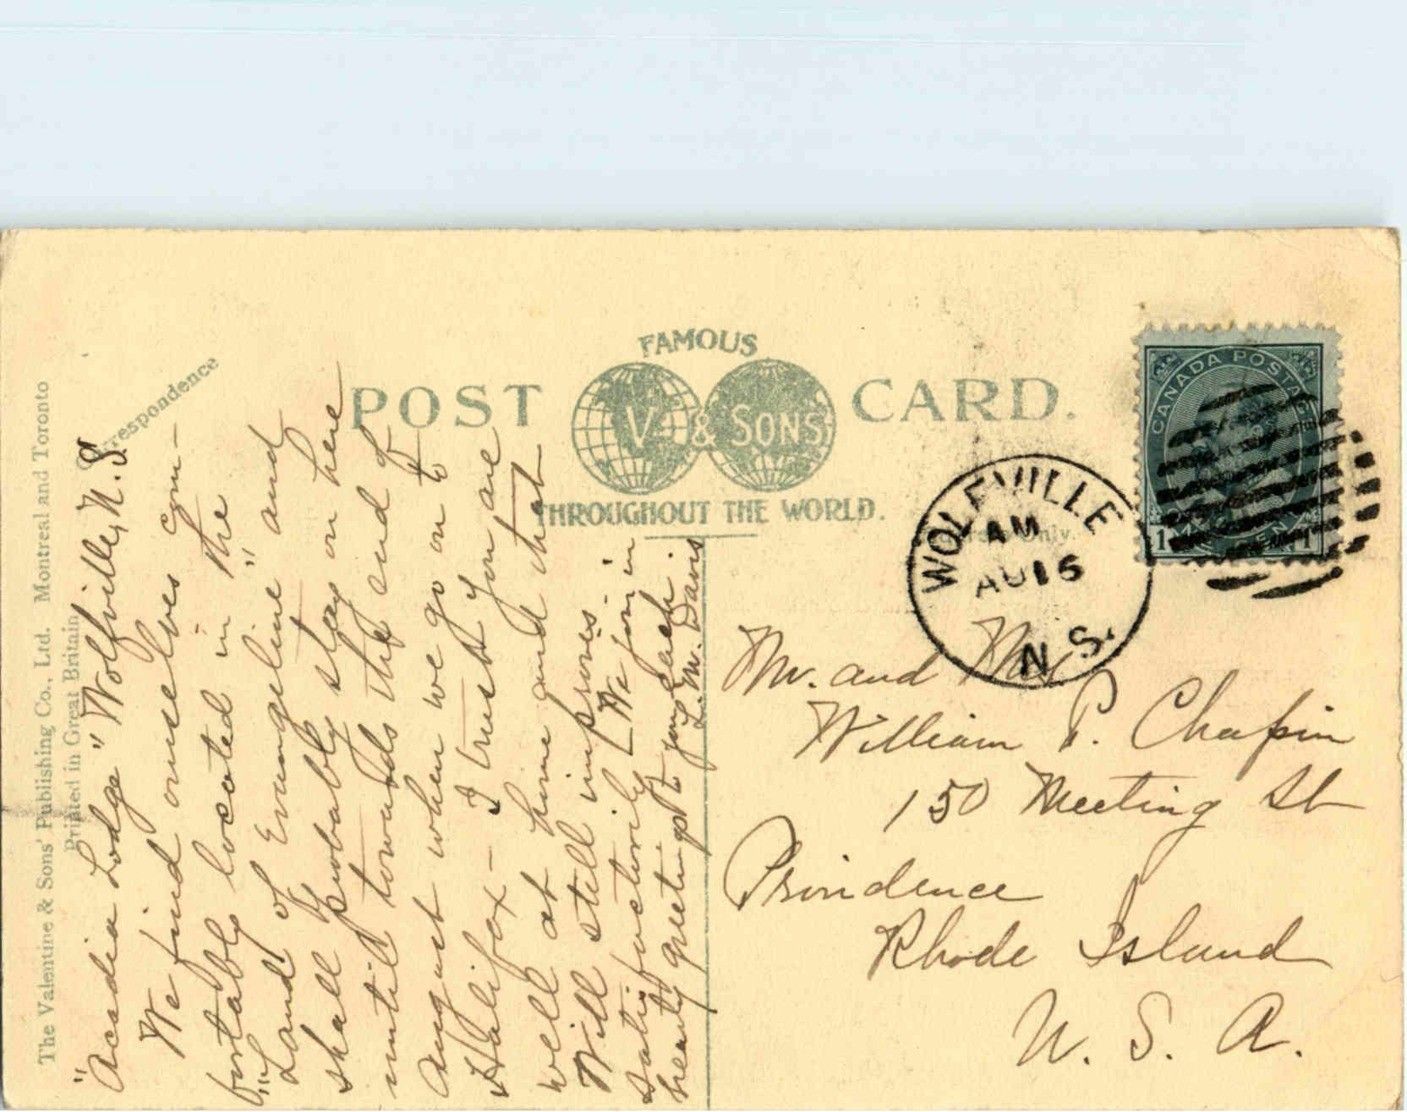 The Valentine & Sons' Publishing Co., Ltd. Montreal and Toronto
Printed in Great Britain.
Correspondence
POST CARD.
FAMOUS
V. & SONS
THROUGHOUT THE WORLD.
"Acadia Lodge" Wolfville, N.S.
We find ourselves com-
fortably located in the
"Land of Evangeline" and
shall probably stay on here
until towards the end of
August when we go on to
Halifax - I trust you are
well at home and that
Will still improves
satisfactorily. We join in
hearty greetings to you each.
L. M. Davis
CANADA POSTAGE
1 1
WOLFVILLE
AM
AU 16
N. S.
Only.
Mr. and Mrs
William P. Chapin
150 Meeting St
Providence
Rhode Island
U. S. A.